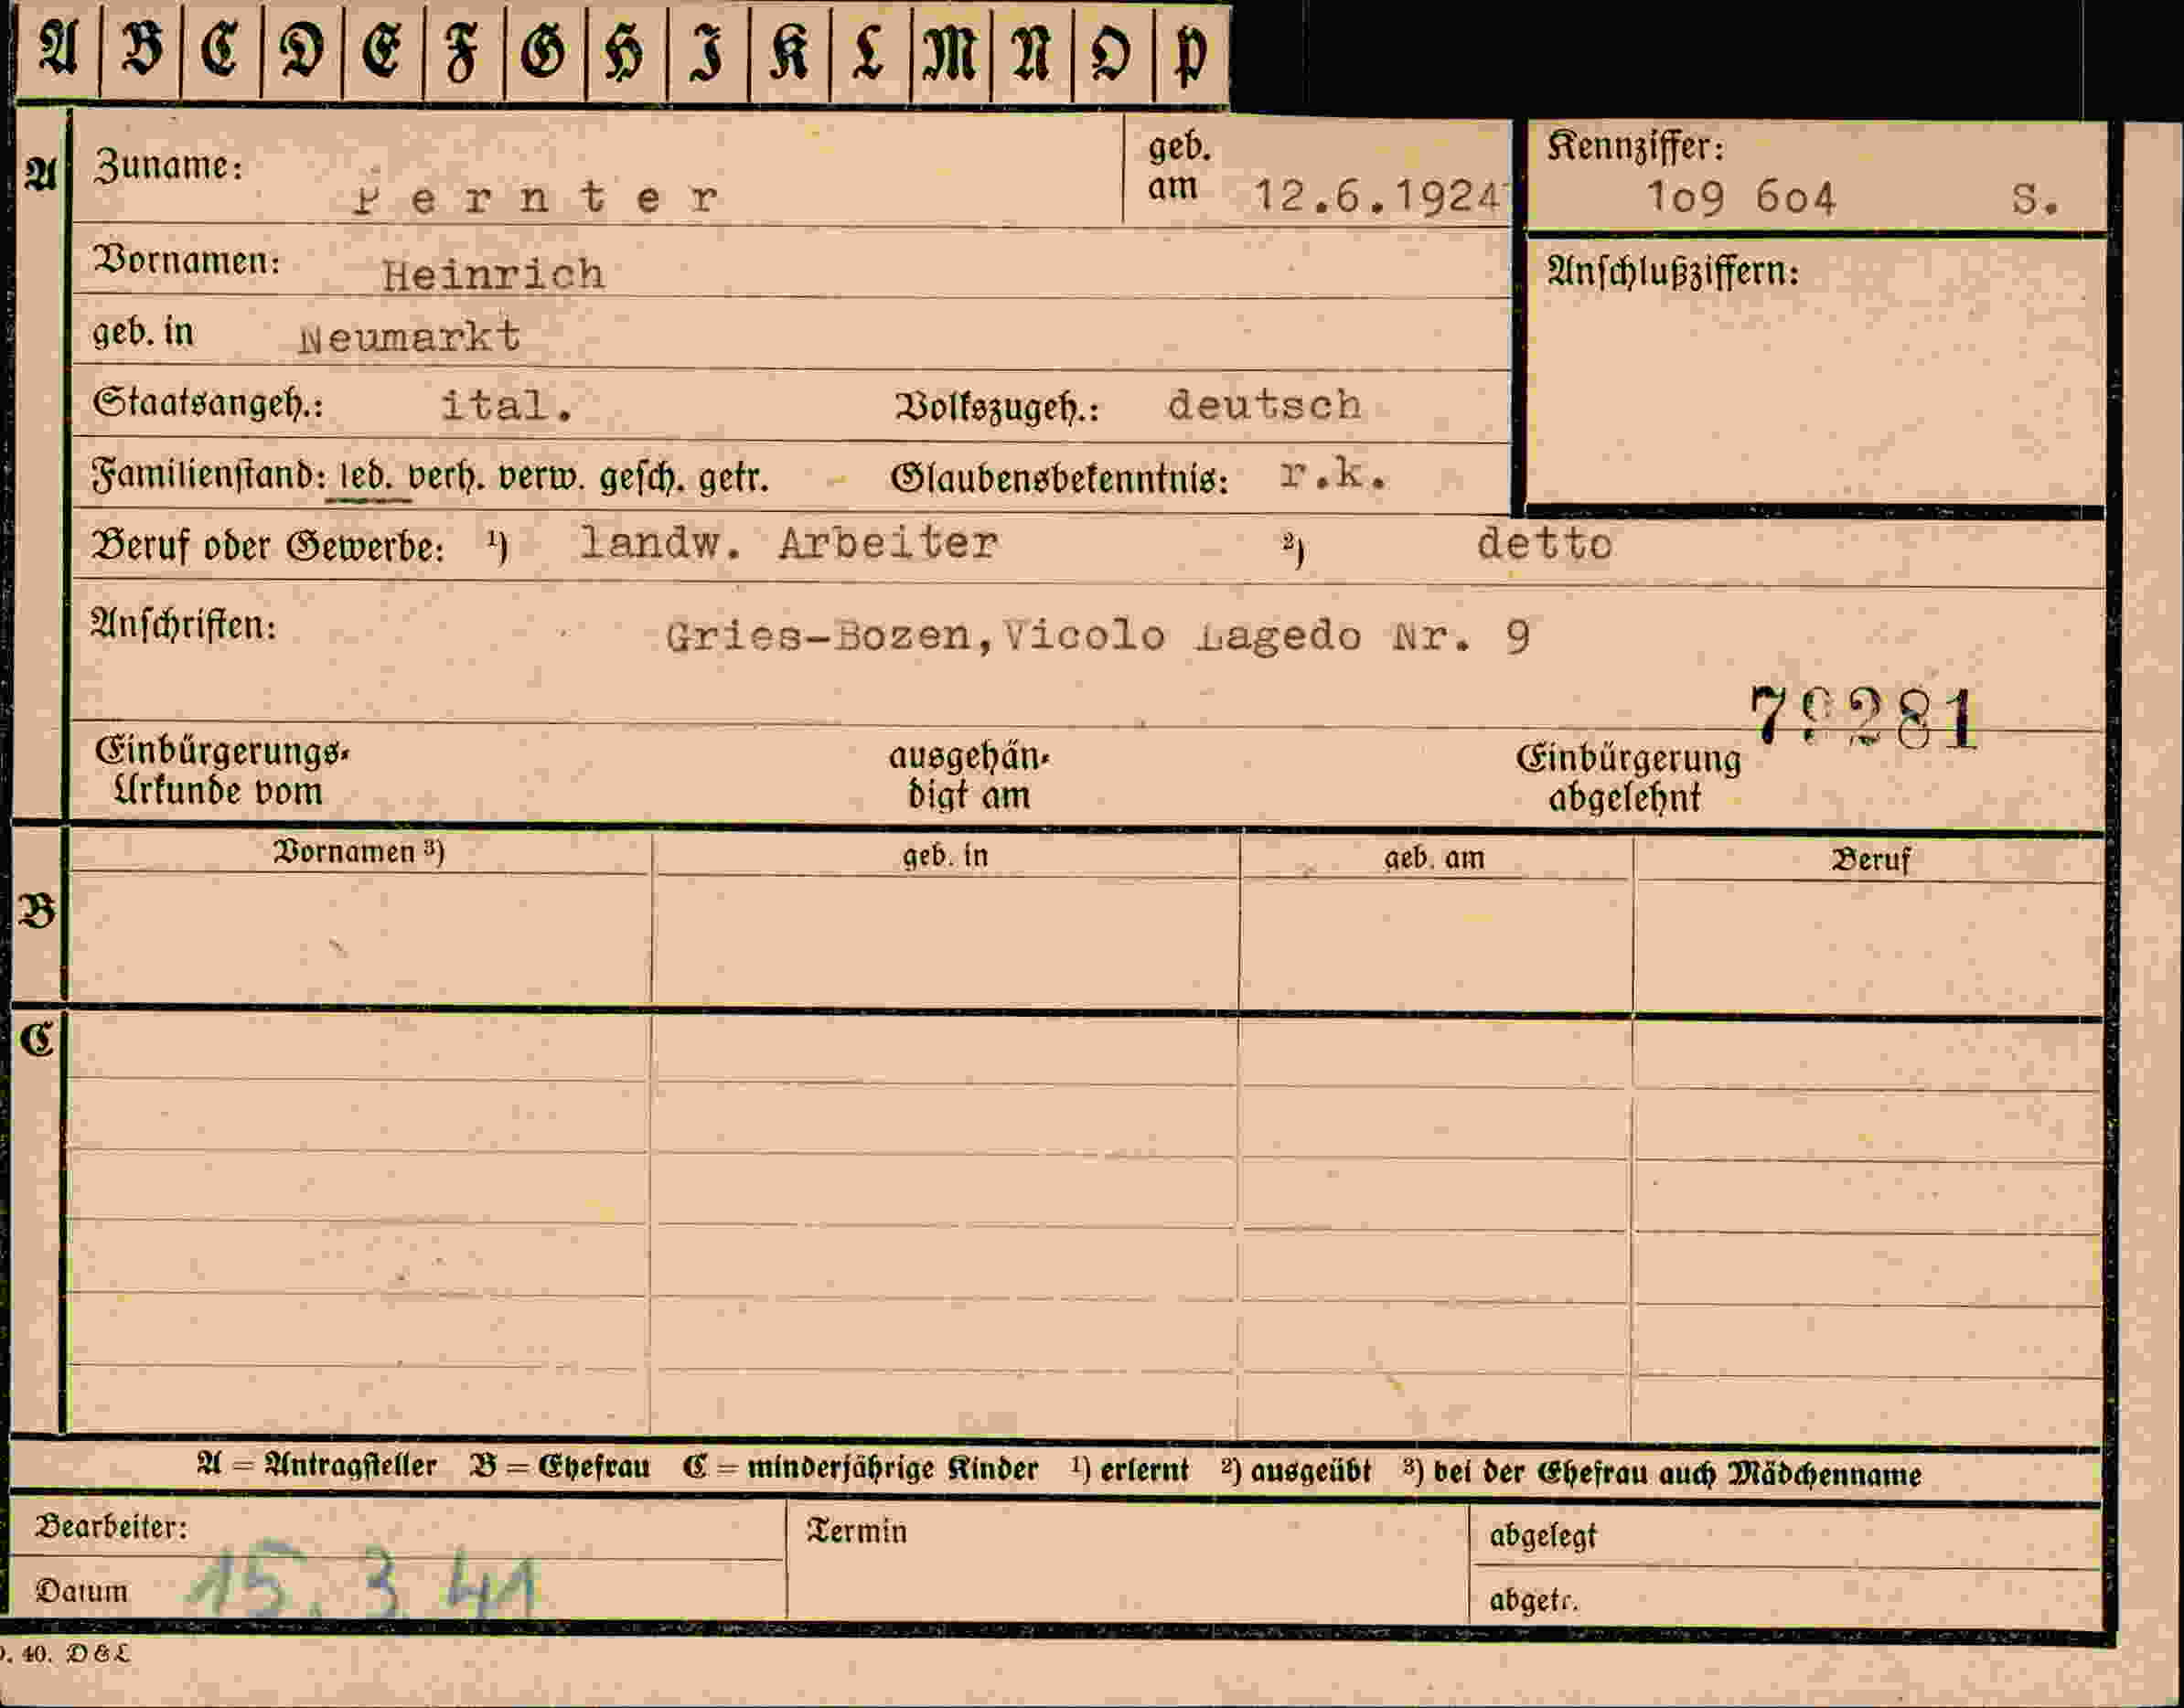 A B C D E F G H I K L M N O P
A Zuname: Pernter geb. am 12.6.1924 Kennziffer: 1o9 6o4 S.
Vornamen: Heinrich Anschlußziffern:
geb. in Neumarkt
Staatsangeh.: ital. Volkszugeh.: deutsch
Familienstand: led. verh. verw. gesch. getr. Glaubensbekenntnis: r.k.
Beruf oder Gewerbe: ¹) landw. Arbeiter ²) detto
Anschriften: Gries-Bozen,Vicolo Lagedo Nr. 9
Einbürgerungs-
Urkunde vom
ausgehän-
digt am
Einbürgerung
abgelehnt
B Vornamen ³) geb. in geb. am Beruf
C
A = Antragsteller B = Ehefrau C = minderjährige Kinder ¹) erlernt ²) ausgeübt ³) bei der Ehefrau auch Mädchenname
Bearbeiter: Termin abgelegt
Datum 15. 3. 41 abgetr.
. 40. D & L